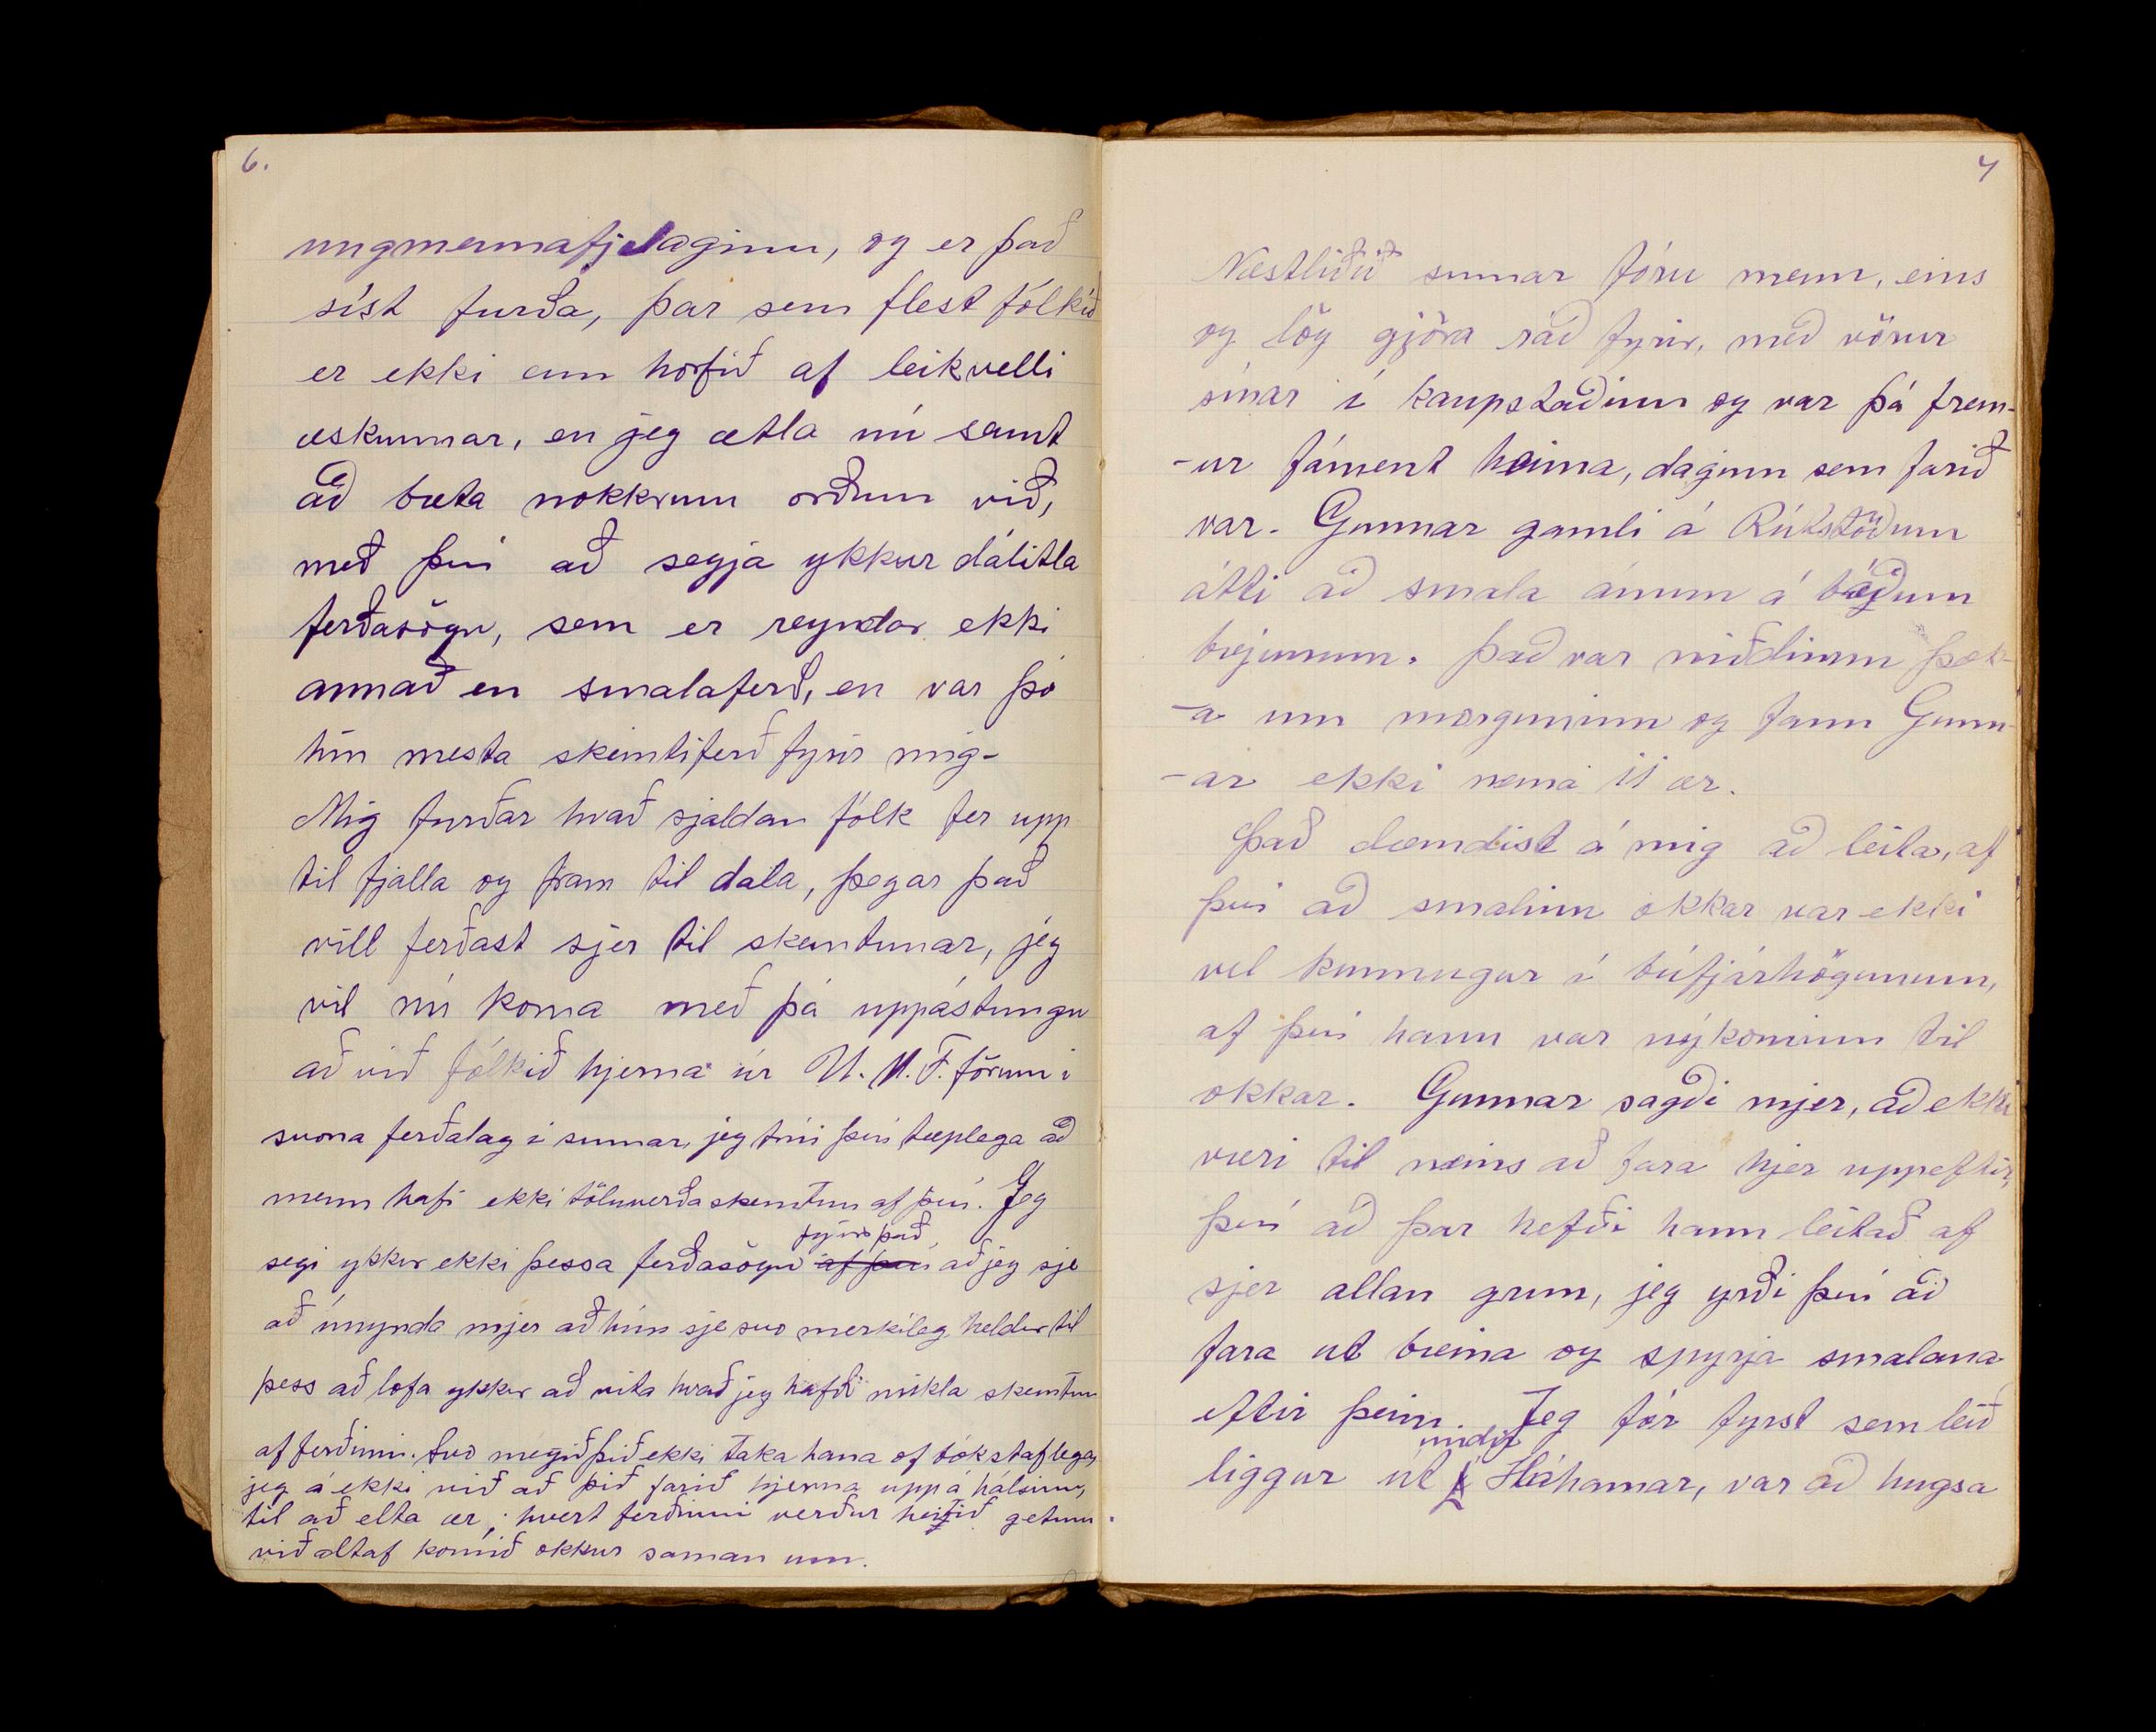 6.
ungmennafjelaginu, og er það
síst furða, þar sem flest fólkið
er ekki enn horfið af leikvelli
æskunnar, en jeg ætla nú samt
að bæta nokkrum orðum við,
með því að segja ykkur dálitla
ferðasögu, sem er reyndar ekki
annað en smalaferð, en var þó
hin mesta skemtiferð fyrir mig-
Mig furðar hvað sjaldan fólk fer upp
til fjalla og fram til dala, þegar það
vill ferðast sjer til skemtunar, jeg
vil nú koma með þá uppástungu
að við fólkið hjerna úr U. M. F. förum í
svona ferðalag í sumar, jeg trúi því tæplega að
menn hafi ekki töluverða skemtun af því. Jeg
fyrir það,
segi ykkur ekki þessa ferðasögu af því að jeg sje
að ímynda mjer að hún sje svo merkileg heldur til
þess að lofa ykkur að vita hvað jeg hafði mikla skemtun
af ferðinni. Svo megið þið ekki taka hana of bókstaflega,
jeg á ekki við að þið farið hjerna upp á hálsinn,
til að elta ær, hvert ferðinni verður heitið getum
við altaf komið okkur saman um.
7
Næstliðið sumar fóru menn, eins
og lög gjöra ráð fyrir, með vörur
sínar í kaupstaðinn og var þá frem-
-ur fáment heima, daginn sem farið
var. Gunnar gamli á Rútsstöðum
átti að smala ánum á báðum
bæjunum. Það var niðdimm þok-
-a um morguninn og fann Gunn-
-ar ekki nema 11 ær.
Það dæmdist á mig að leita, af
því að smalinn okkar var ekki
vel kunnugur í búfjárhögunum,
af því hann var nýkominn til
okkar. Gunnar sagði mjer, að ekki
væri til neins að fara hjer uppeftir,
því að þar hefði hann leitað af
sjer allan grun, jeg yrði því að
fara út bæina og spyrja smalana
eftir þeim. Jeg fór fyrst sem leið
undir
liggur út á Háhamar, var að hugsa